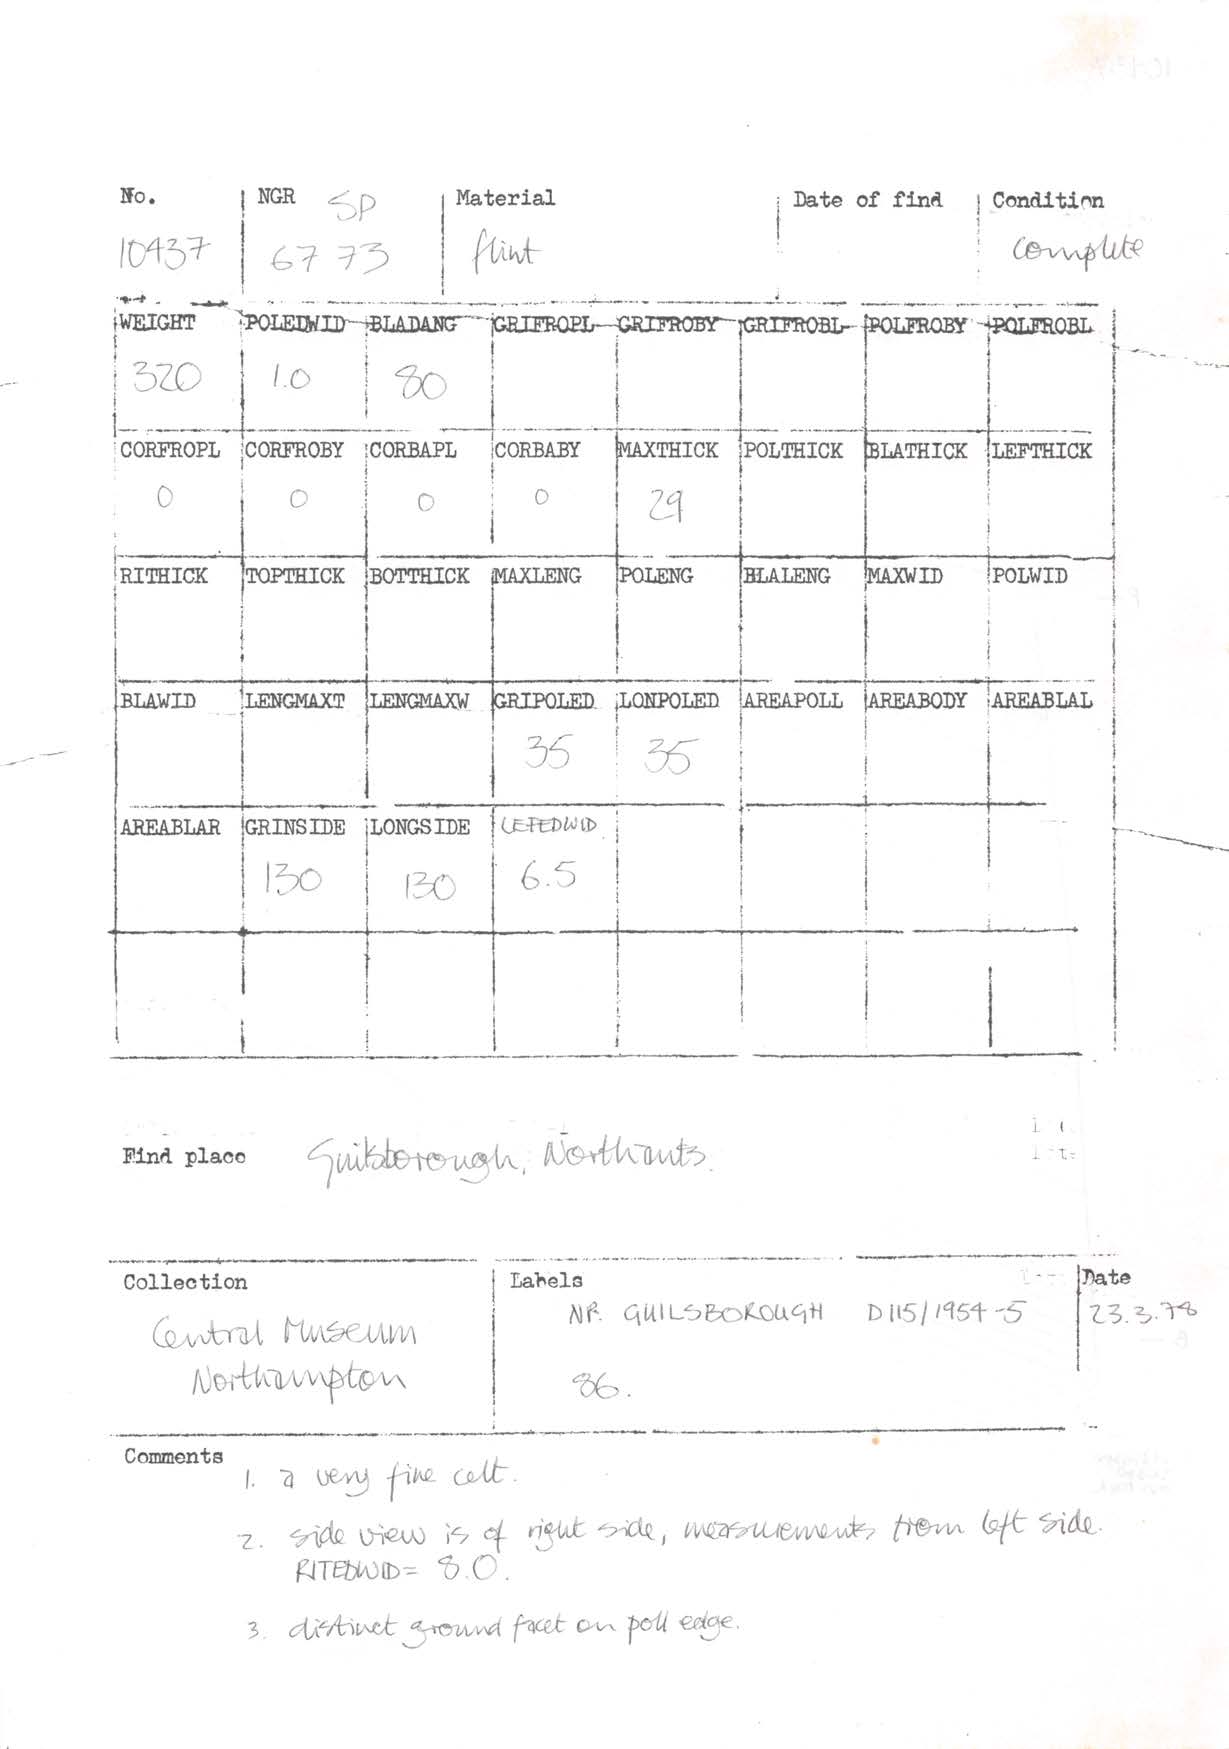 No. NGR SP Material Date of find Condition
10437 67 73 flint complete
WEIGHT POLEDWID BLADANG GRIFROPL GRIFROBY GRIFROBL POLFROBY POLFROBL
320 1.0 80
CORFROPL CORFROBY CORBAPL CORBABY MAXTHICK POLTHICK BLATHICK LEFTHICK
0 0 0 0 29
RITHICK TOPTHICK BOTTHICK MAXLENG POLENG BLALENG MAXWID POLWID
BLAWID LENGMAXT LENGMAXW GRIPOLED LONPOLED AREAPOLL AREABODY AREABLAL
35 35
AREABLAR GRINSIDE LONGSIDE LEFEDWID
130 130 6.5
Find place Guilsborough, Northants.
Collection Labels Date
NR. GUILSBOROUGH D115/1954-5 23.3.78
Central Museum
Northampton 86.
Comments
1. a very fine celt.
2. side view is of right side, measurements from left side.
RITEDWID = 8.0.
3. distinct ground facet on poll edge.